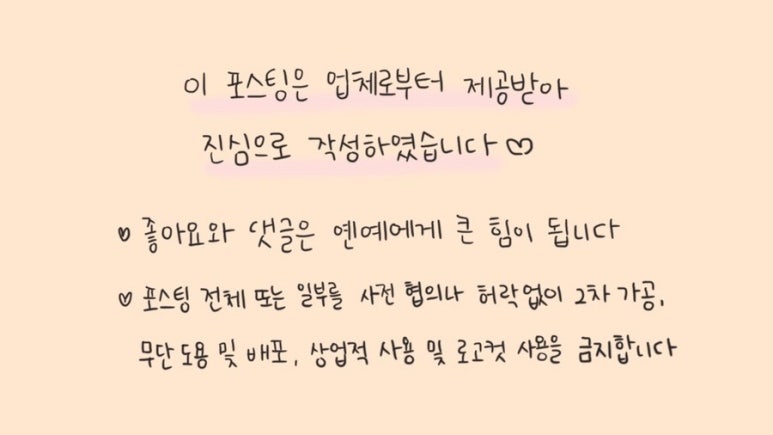 이 포스팅은 업체로부터 제공받아
진심으로 작성하였습니다 ♡
♥ 좋아요와 댓글은 옌예에게 큰 힘이 됩니다
♡ 포스팅 전체 또는 일부를 사전 협의나 허락없이 2차 가공,
무단 도용 및 배포, 상업적 사용 및 로고컷 사용을 금지합니다